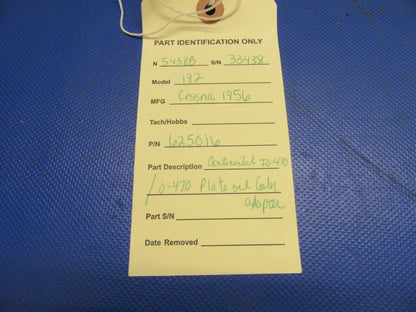 PART IDENTIFICATION ONLY
N 5438B S/N 33438
Model 182
MFG Cessna 1956
Tach/Hobbs
P/N 625016
Part Description Continental IO-470
/O-470 Plate oil Cooler
adapter
Part S/N
Date Removed